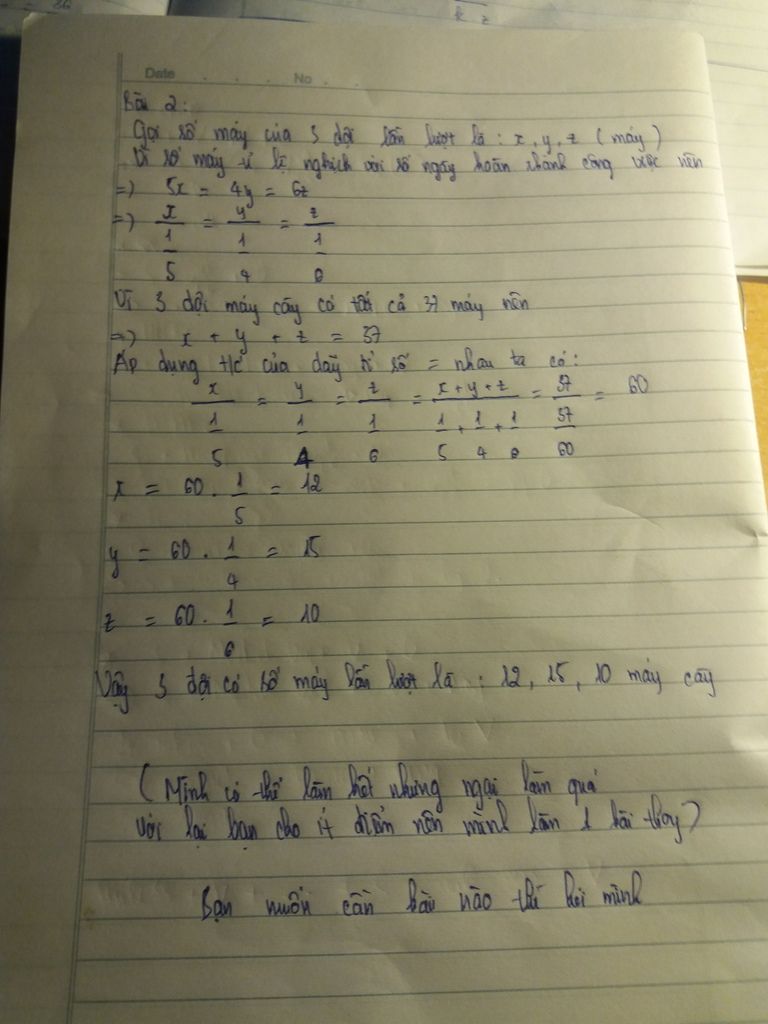 Date . . . No . .
Bài 2:
Gọi số máy của 3 đội lần lượt là : x, y, z ( máy )
Vì số máy tỉ lệ nghịch với số ngày hoàn thành công việc nên
=> 5x = 4y = 6z
=> x/(1/5) = y/(1/4) = z/(1/6)
Vì 3 đội máy cày có tất cả 37 máy nên
=> x + y + z = 37
Áp dụng t/c của dãy tỉ số = nhau ta có:
x/(1/5) = y/(1/4) = z/(1/6) = (x+y+z)/(1/5+1/4+1/6) = 37/(37/60) = 60
x = 60 . 1/5 = 12
y = 60 . 1/4 = 15
z = 60 . 1/6 = 10
Vậy 3 đội có số máy lần lượt là : 12, 15, 10 máy cày
( Mình có thể làm hết nhưng ngại làm quá
với lại bạn cho ít điểm nên mình làm 1 bài thôy)
Bạn muốn cần bài nào thì hỏi mình